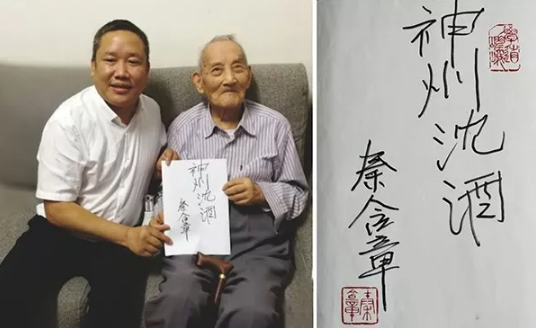 神州沈酒
秦含章
神州沈酒
秦含章